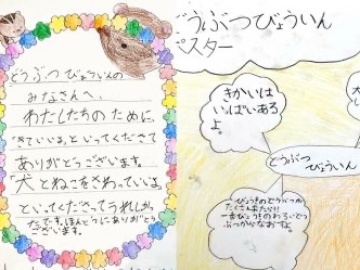 どうぶつびょういんの
みなさんへ、
わたしたちのために、
「きていいよ。」といってくださて
ありがとうございます。
犬とねこをさわっていいよ
といってくださってうれしかっ
たです。ほんとうにありがとう
ございます。
どうぶつびょういん
ポスター
きかいは
いっぱいある
よ。
どうぶつ
びょういん
犬
びょうきのどうぶつが
たくさんきたら!!
一番びょうきのわるいどう
ぶつからなおすよ。